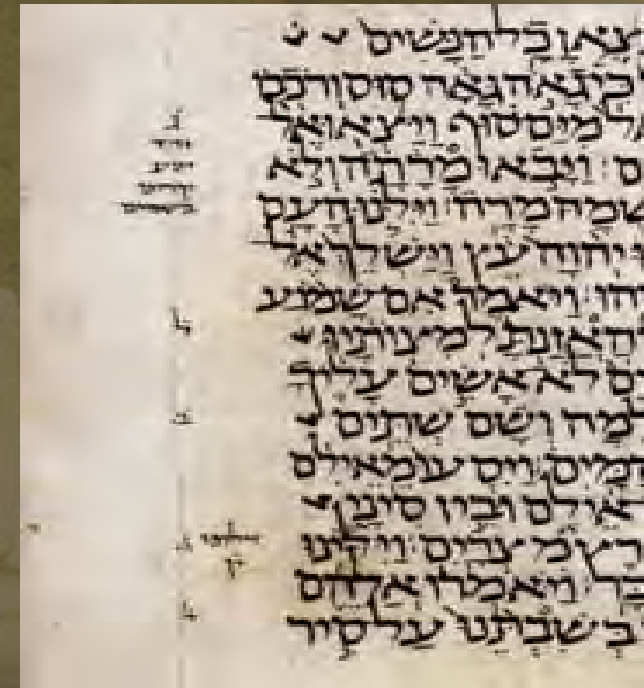 צאן כל הנשים
כי גאה גאה סוס ורכב
מים סוף ויצאו אל
ם ויבאו מרתה ולא
שמה מרה וילנו העם
יהוה עץ וישלך אל
הו ויאמר אם שמוע
האזנת למצותיו
ם לא אשים עליך
מה ושם שתים
המים ויסעו מאילם
אילם ובין סיני
רץ מצרים וילינו
בר ויאמרו אלהם
בשבתנו על סיר